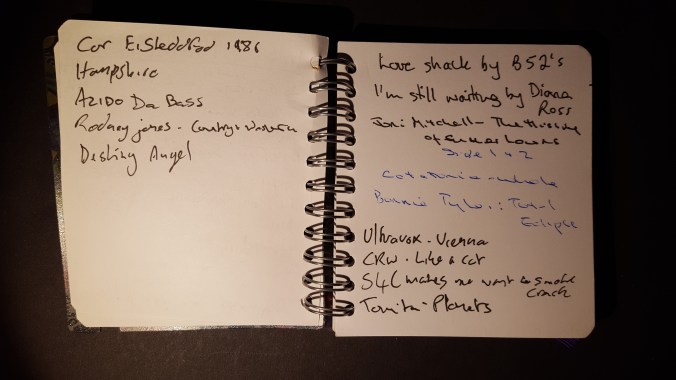 Cor Eisteddfod 1986
Hampshire
Azido Da Bass
Rodney Jones - Country + Western
Destiny Angel
Love shack by B52's
I'm still waiting by Diana
Ross
Joni Mitchell - The Hissing
of Summer Lawns
Side 1 + 2
Catatonia -
Bonnie Tyler : Total
Eclipse
Ultravox - Vienna
CRW - Like a cat
S4C makes me want to smoke
crack
Tomita - Planets